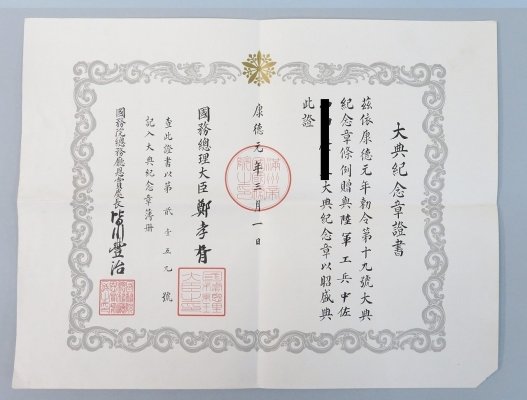 大典紀念章證書
茲依康德元年勅令第十九號大典
紀念章條例贈與陸軍工兵中佐
大典紀念章以昭盛典
此證
康德元年三月一日
國務總理大臣 鄭孝胥
查此證書以第貳壹五九號
記入大典紀念章簿冊
國務院總務廳恩賞處長